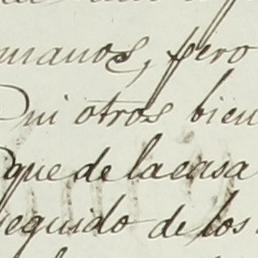 manos, pero
ni otros bien
que de la casa
seguido de los